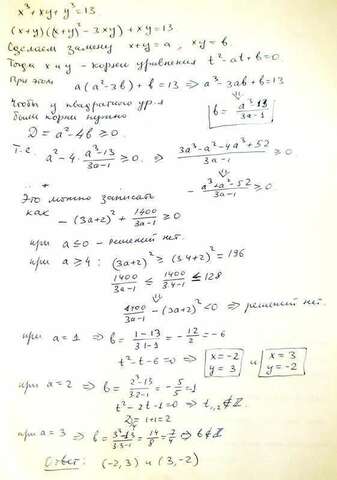 x³ + xy + y³ = 13
(x+y)((x+y)² - 3xy) + xy = 13
Сделаем замену x+y = a, xy = b
Тогда x и y - корни уравнения t² - at + b = 0
При этом a(a² - 3b) + b = 13 ⇒ a³ - 3ab + b = 13
⇓
Чтобы у квадратного ур-я были корни нужно
b = (a³-13)/(3a-1)
D = a² - 4b ≥ 0.
Т.е. a² - 4·(a³-13)/(3a-1) ≥ 0. ⇒ (3a³ - a² - 4a³ + 52)/(3a-1) ≥ 0
⇓
- (a³ + a² - 52)/(3a-1) ≥ 0
Это можно записать
как - (3a+2)² + 1400/(3a-1) ≥ 0
при a ≤ 0 - решений нет.
при a ≥ 4: (3a+2)² ≥ (3·4+2)² = 196
1400/(3a-1) ≤ 1400/(3·4-1) ≤ 128
⇓
1400/(3a-1) - (3a+2)² < 0 ⇒ решений нет.
при a = 1 ⇒ b = (1-13)/(3·1-1) = -12/2 = -6
t² - t - 6 = 0 ⇒ x = -2 y = 3 и x = 3 y = -2
при a = 2 ⇒ b = (2³-13)/(3·2-1) = -5/5 = 1
t² - 2t - 1 = 0 ⇒ t₁,₂ ∉ ℤ
D = 1+1 = 2
при a = 3 ⇒ b = (3³-13)/(3·3-1) = 14/8 = 7/4 ⇒ b ∉ ℤ
Ответ: (-2, 3) и (3, -2)